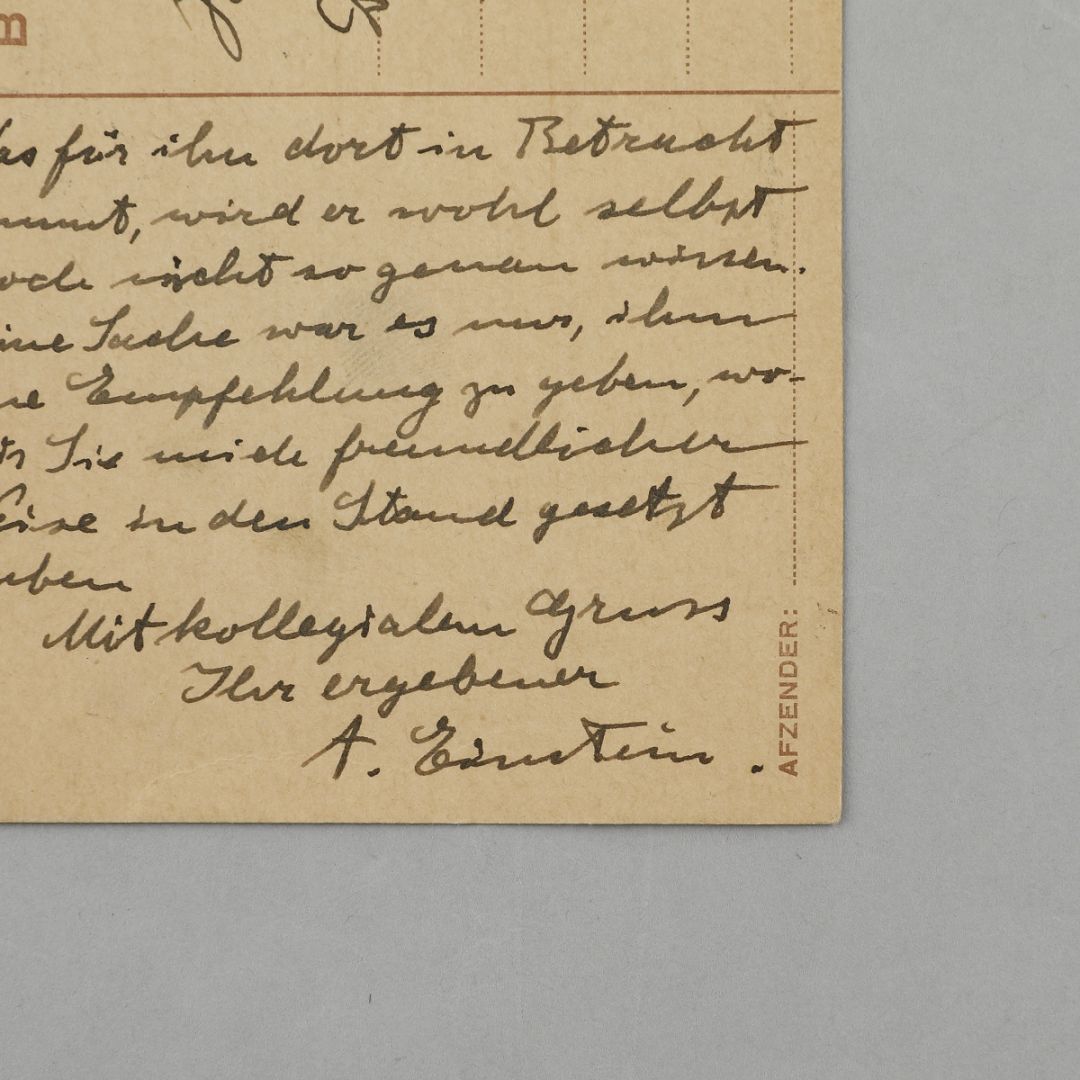 m
das für ihn dort in Betracht
mmt, wird er wohl selbst
och nicht so genau wissen.
ine Sache war es nur, ihm
ne Empfehlung zu geben, wo-
ir Sie mich freundlicher
eise in den Stand gesetzt
aben
Mit kollegialem Gruss
Ihr ergebener
A. Einstein.
AFZENDER: